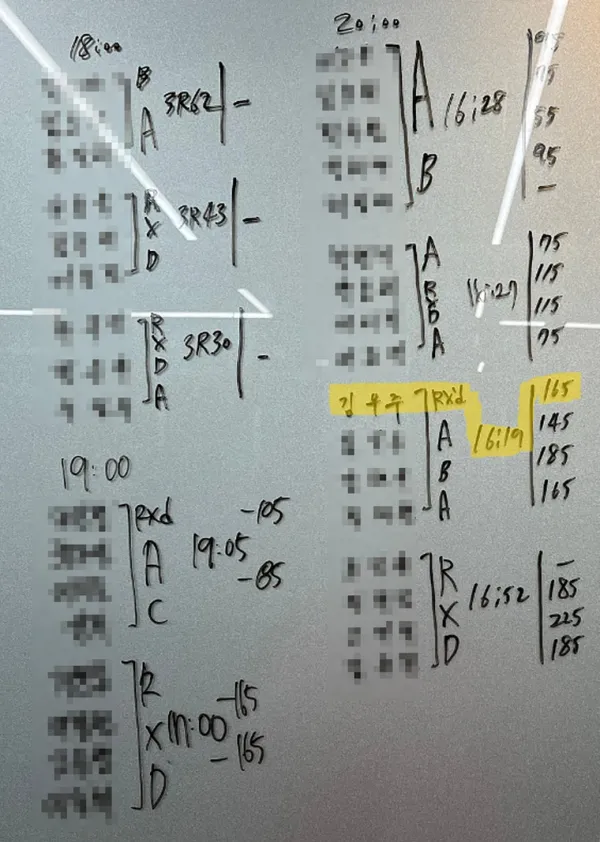 18:00
B
A
3R62 -
R
X
D
3R43 -
R
X
D
A
3R30 -
19:00
RXd
A
C
19:05
-105
-85
R
X
D
17:00
-165
-165
20:00
A
B
16:28
75
55
95
-
A
B
D
A
16:27
75
115
115
75
김우주 RX'd
A
B
A
16:19
165
145
185
165
R
X
D
16:52
-
185
225
185